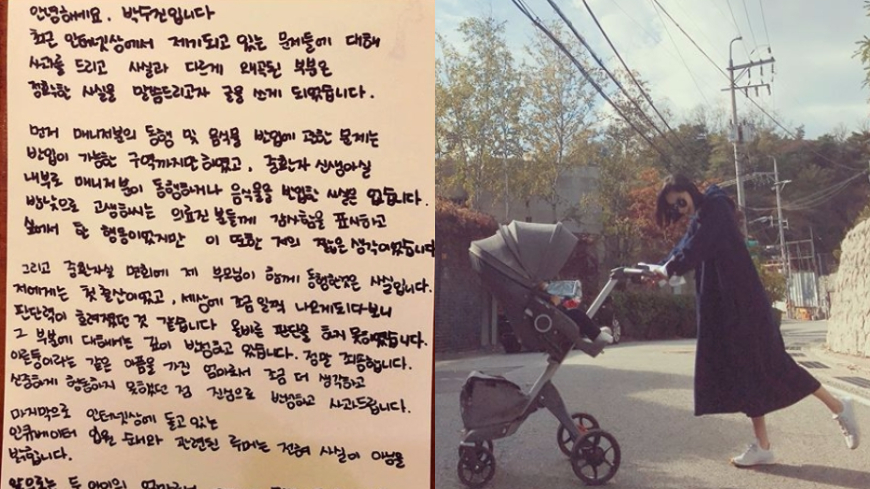 안녕하세요. 박수진입니다
최근 인터넷상에서 제기되고 있는 문제들에 대해
사과를 드리고 사실과 다르게 왜곡된 부분은
정확한 사실을 말씀드리고자 글을 쓰게 되었습니다.
먼저 매니저분의 동행 및 음식물 반입에 관한 문제는
반입이 가능한 구역까지만 하였고, 중환자 신생아실
내부로 매니저분이 동행하거나 음식물을 반입한 사실은 없습니다.
밤낮으로 고생하시는 의료진 분들께 감사함을 표시하고
싶어서 한 행동이었지만 이 또한 저의 짧은 생각이었습니다
그리고 중환자실 면회에 제 부모님이 함께 동행한것은 사실입니다.
저에게는 첫 출산이었고, 세상에 조금 일찍 나오게되다보니
판단력이 흐려졌던 것 같습니다 올바른 판단을 하지 못하였습니다.
그 부분에 대해서는 깊이 반성하고 있습니다. 정말 죄송합니다.
이른둥이라는 같은 아픔을 가진 엄마로서 조금 더 생각하고
신중하게 행동하지 못했던 점 진심으로 반성하고 사과드립니다.
마지막으로 인터넷상에 돌고 있는
인큐베이터 입원 순서와 관련된 루머는 전혀 사실이 아님을
밝힙니다.
앞으로는 두 아이의